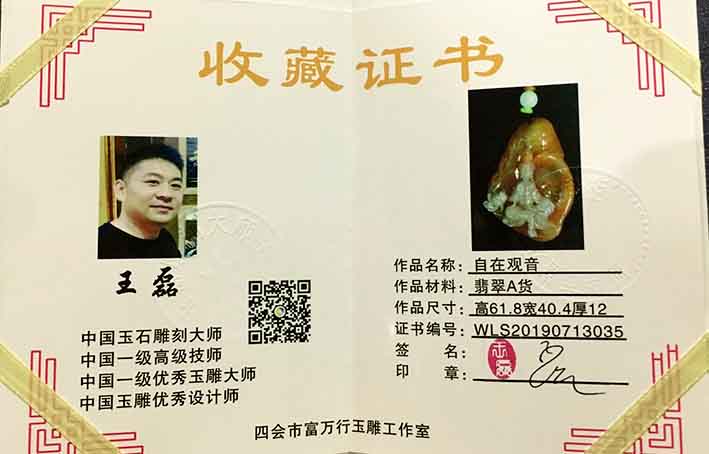 收藏证书
王磊
中国玉石雕刻大师
中国一级高级技师
中国一级优秀玉雕大师
中国玉雕优秀设计师
作品名称：自在观音
作品材料：翡翠A货
作品尺寸：高61.8宽40.4厚12
证书编号：WLS20190713035
签 名：
印 章：
四会市富万行玉雕工作室